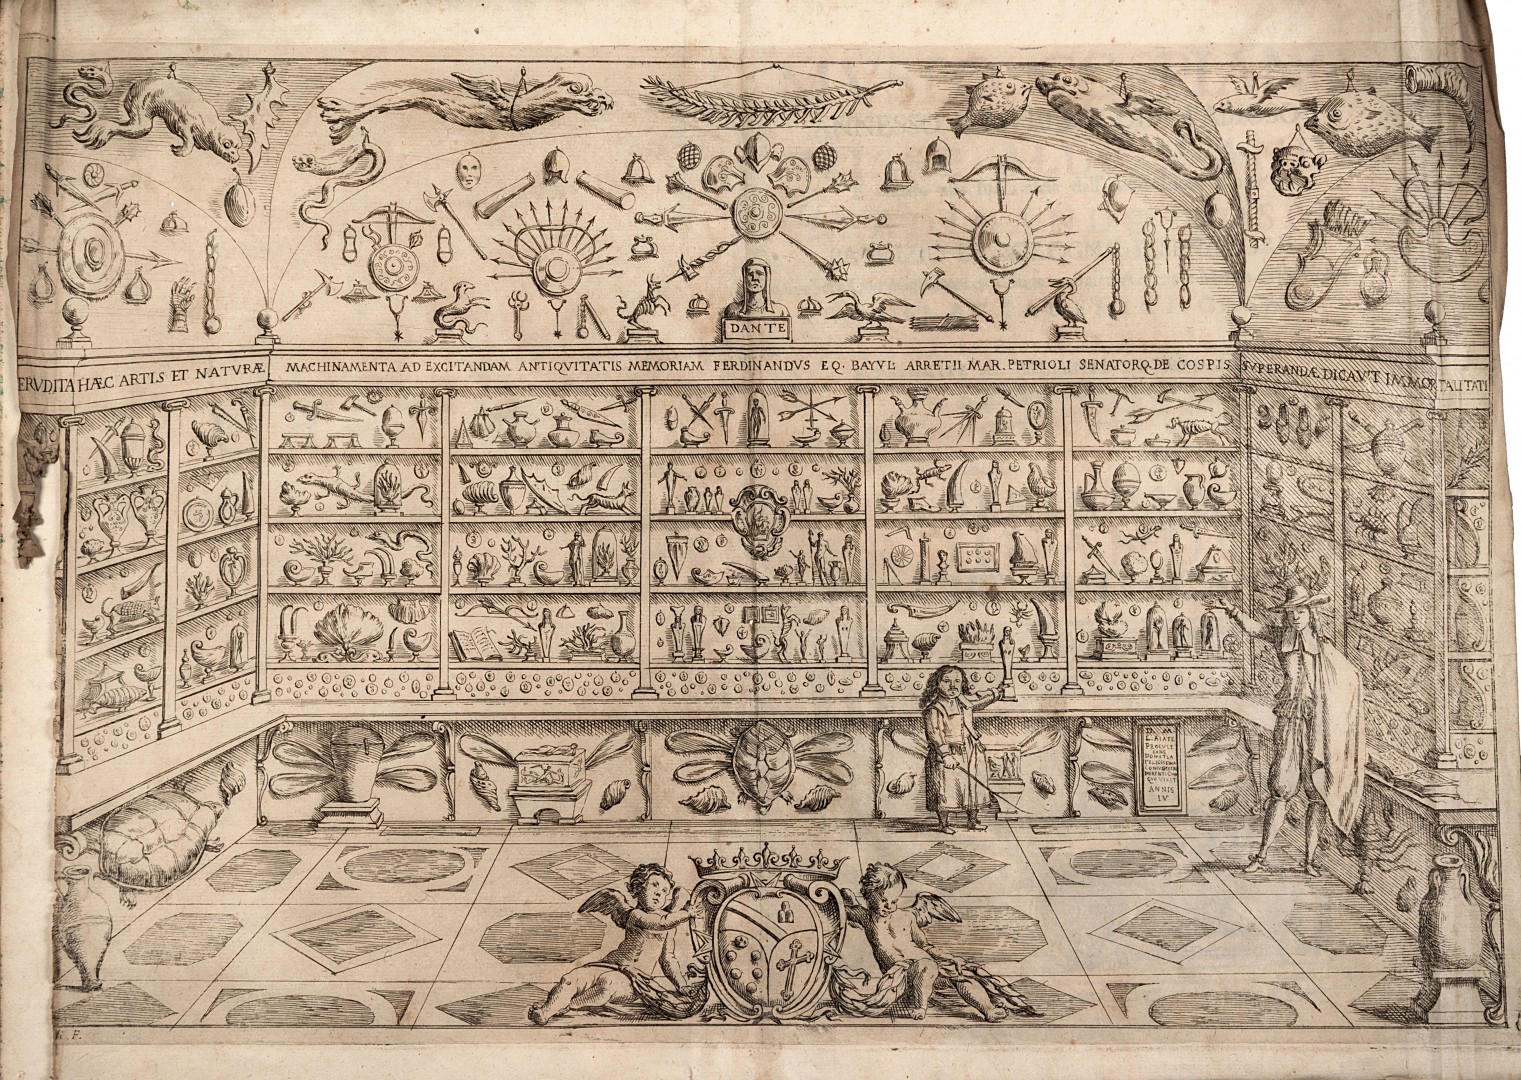 DANTE
ERVDITA HÆC ARTIS ET NATVRÆ MACHINAMENTA AD EXCITANDAM ANTIQVITATIS MEMORIAM FERDINANDVS EQ. BAYVL: ARRETII MAR. PETRIOLI SENATORQ. DE COSPIS SVPERANDÆ DICAVIT IMMORTALITATI
PROCVLE
ANNIS
LV
F.